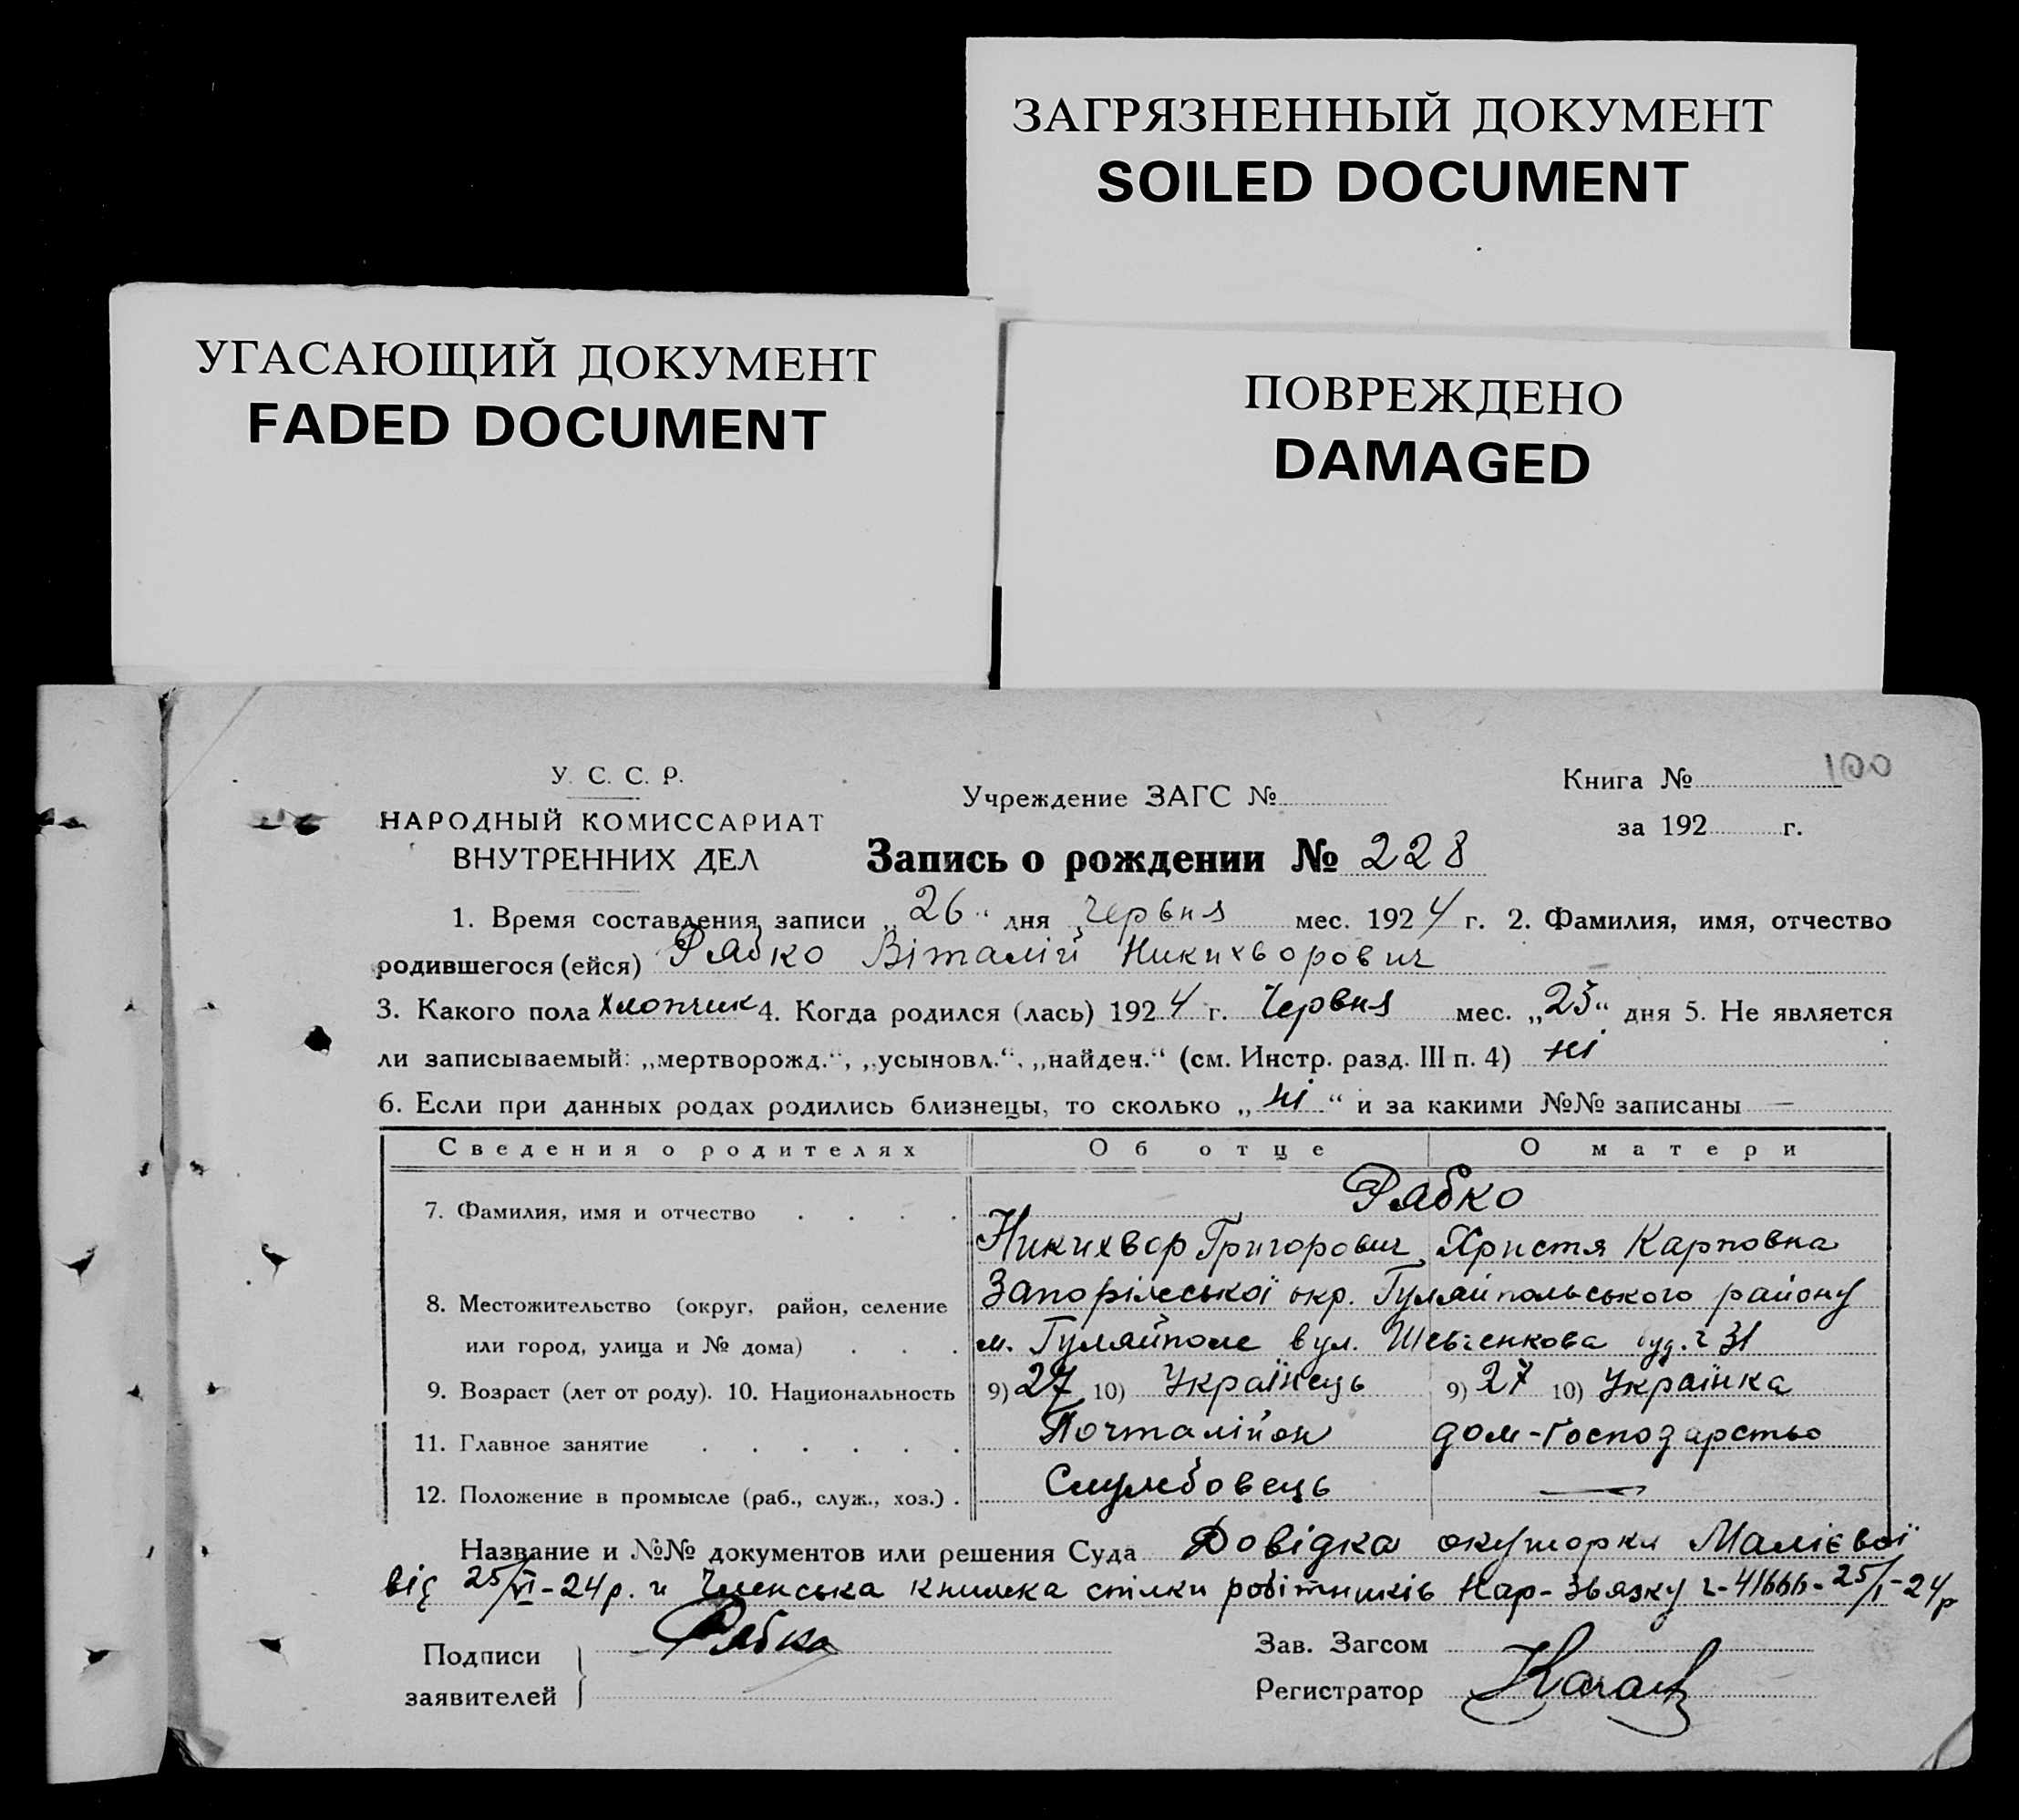 ЗАГРЯЗНЕННЫЙ ДОКУМЕНТ
SOILED DOCUMENT
УГАСАЮЩИЙ ДОКУМЕНТ
FADED DOCUMENT
ПОВРЕЖДЕНО
DAMAGED
У. С. С. Р.
НАРОДНЫЙ КОМИССАРИАТ
ВНУТРЕННИХ ДЕЛ
Учреждение ЗАГС №
Книга № 100
за 192 г.
Запись о рождении № 228
1. Время составления записи „26“ дня Червня мес. 1924 г. 2. Фамилия, имя, отчество
родившегося (ейся) Рябко Віталій Никихворович
3. Какого пола хлопчик 4. Когда родился (лась) 1924 г. Червня мес. „23“ дня 5. Не является
ли записываемый: „мертворожд.“, „усыновл.“, „найден.“ (см. Инстр. разд. III п. 4) ні
6. Если при данных родах родились близнецы, то сколько „ні“ и за какими №№ записаны —
Сведения о родителях Об отце О матери
7. Фамилия, имя и отчество . . . . Рябко
Никихвор Григорович Христя Карповна
8. Местожительство (округ, район, селение Запоріжської окр. Гуляйпольського району
или город, улица и № дома) . . . м. Гуляйполе вул. Шевченкова буд. ч 31
9. Возраст (лет от роду). 10. Национальность 9) 27 10) Українець 9) 27 10) Українка
11. Главное занятие . . . . . . Почталійон дом-Господарство
12. Положение в промысле (раб., служ., хоз.) . Службовець —
Название и №№ документов или решения Суда Довідка окушорки Малієвої
від 25/VI-24р. и Членська книжка спілки робітників Нар-Звязку ч-41666- 25/I-24р
Подписи
заявителей
Рябко
Зав. Загсом
Регистратор